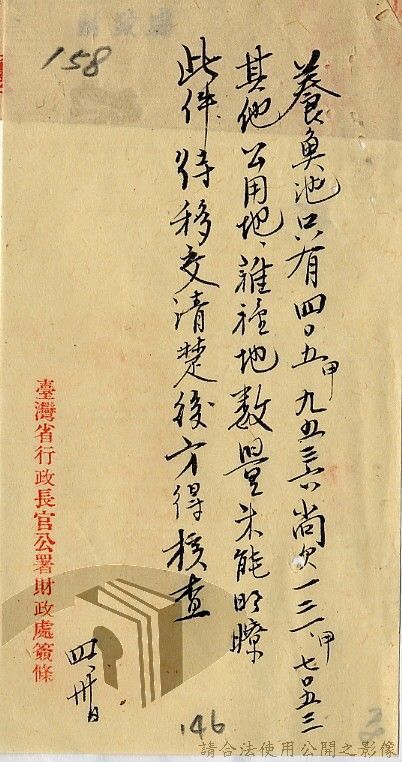 158
養魚池只有四〇五甲九五三六尚欠一三一甲七〇五三
其他公用地、雜種地數量未能明瞭
此件待移交清楚後方得核查
四、卅日
臺灣省行政長官公署財政處簽條
146
請合法使用公開之影像